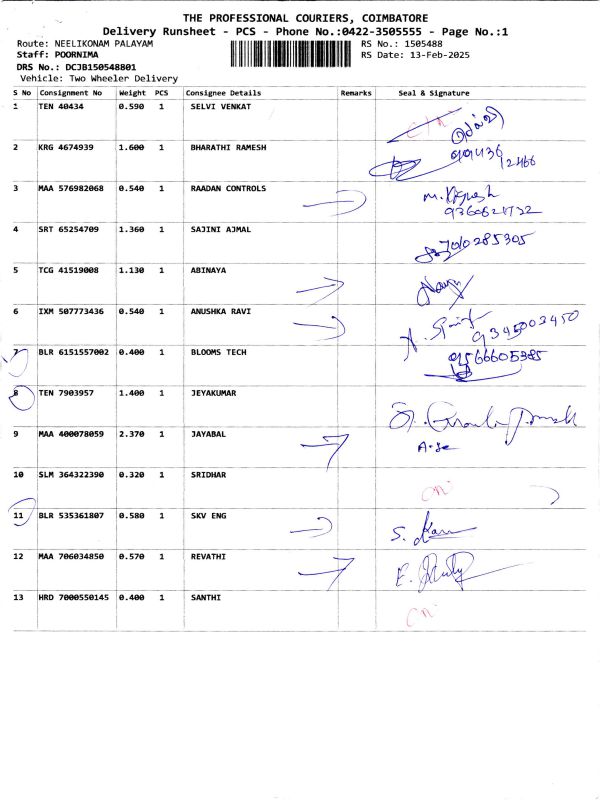 THE PROFESSIONAL COURIERS, COIMBATORE
Delivery Runsheet - PCS - Phone No.:0422-3505555 - Page No.:1
Route: NEELIKONAM PALAYAM RS No.: 1505488
Staff: POORNIMA RS Date: 13-Feb-2025
DRS No.: DCJB150548801
Vehicle: Two Wheeler Delivery
S No Consignment No Weight PCS Consignee Details Remarks Seal & Signature
1 TEN 40434 0.590 1 SELVI VENKAT
2 KRG 4674939 1.600 1 BHARATHI RAMESH
3 MAA 576982068 0.540 1 RAADAN CONTROLS
4 SRT 65254709 1.360 1 SAJINI AJMAL 7010285305
5 TCG 41519008 1.130 1 ABINAYA
6 IXM 507773436 0.540 1 ANUSHKA RAVI 9345003450
7 BLR 6151557002 0.400 1 BLOOMS TECH 9566605385
8 TEN 7903957 1.400 1 JEYAKUMAR
9 MAA 400078059 2.370 1 JAYABAL
10 SLM 364322390 0.320 1 SRIDHAR
11 BLR 535361807 0.580 1 SKV ENG
12 MAA 706034850 0.570 1 REVATHI
13 HRD 7000550145 0.400 1 SANTHI